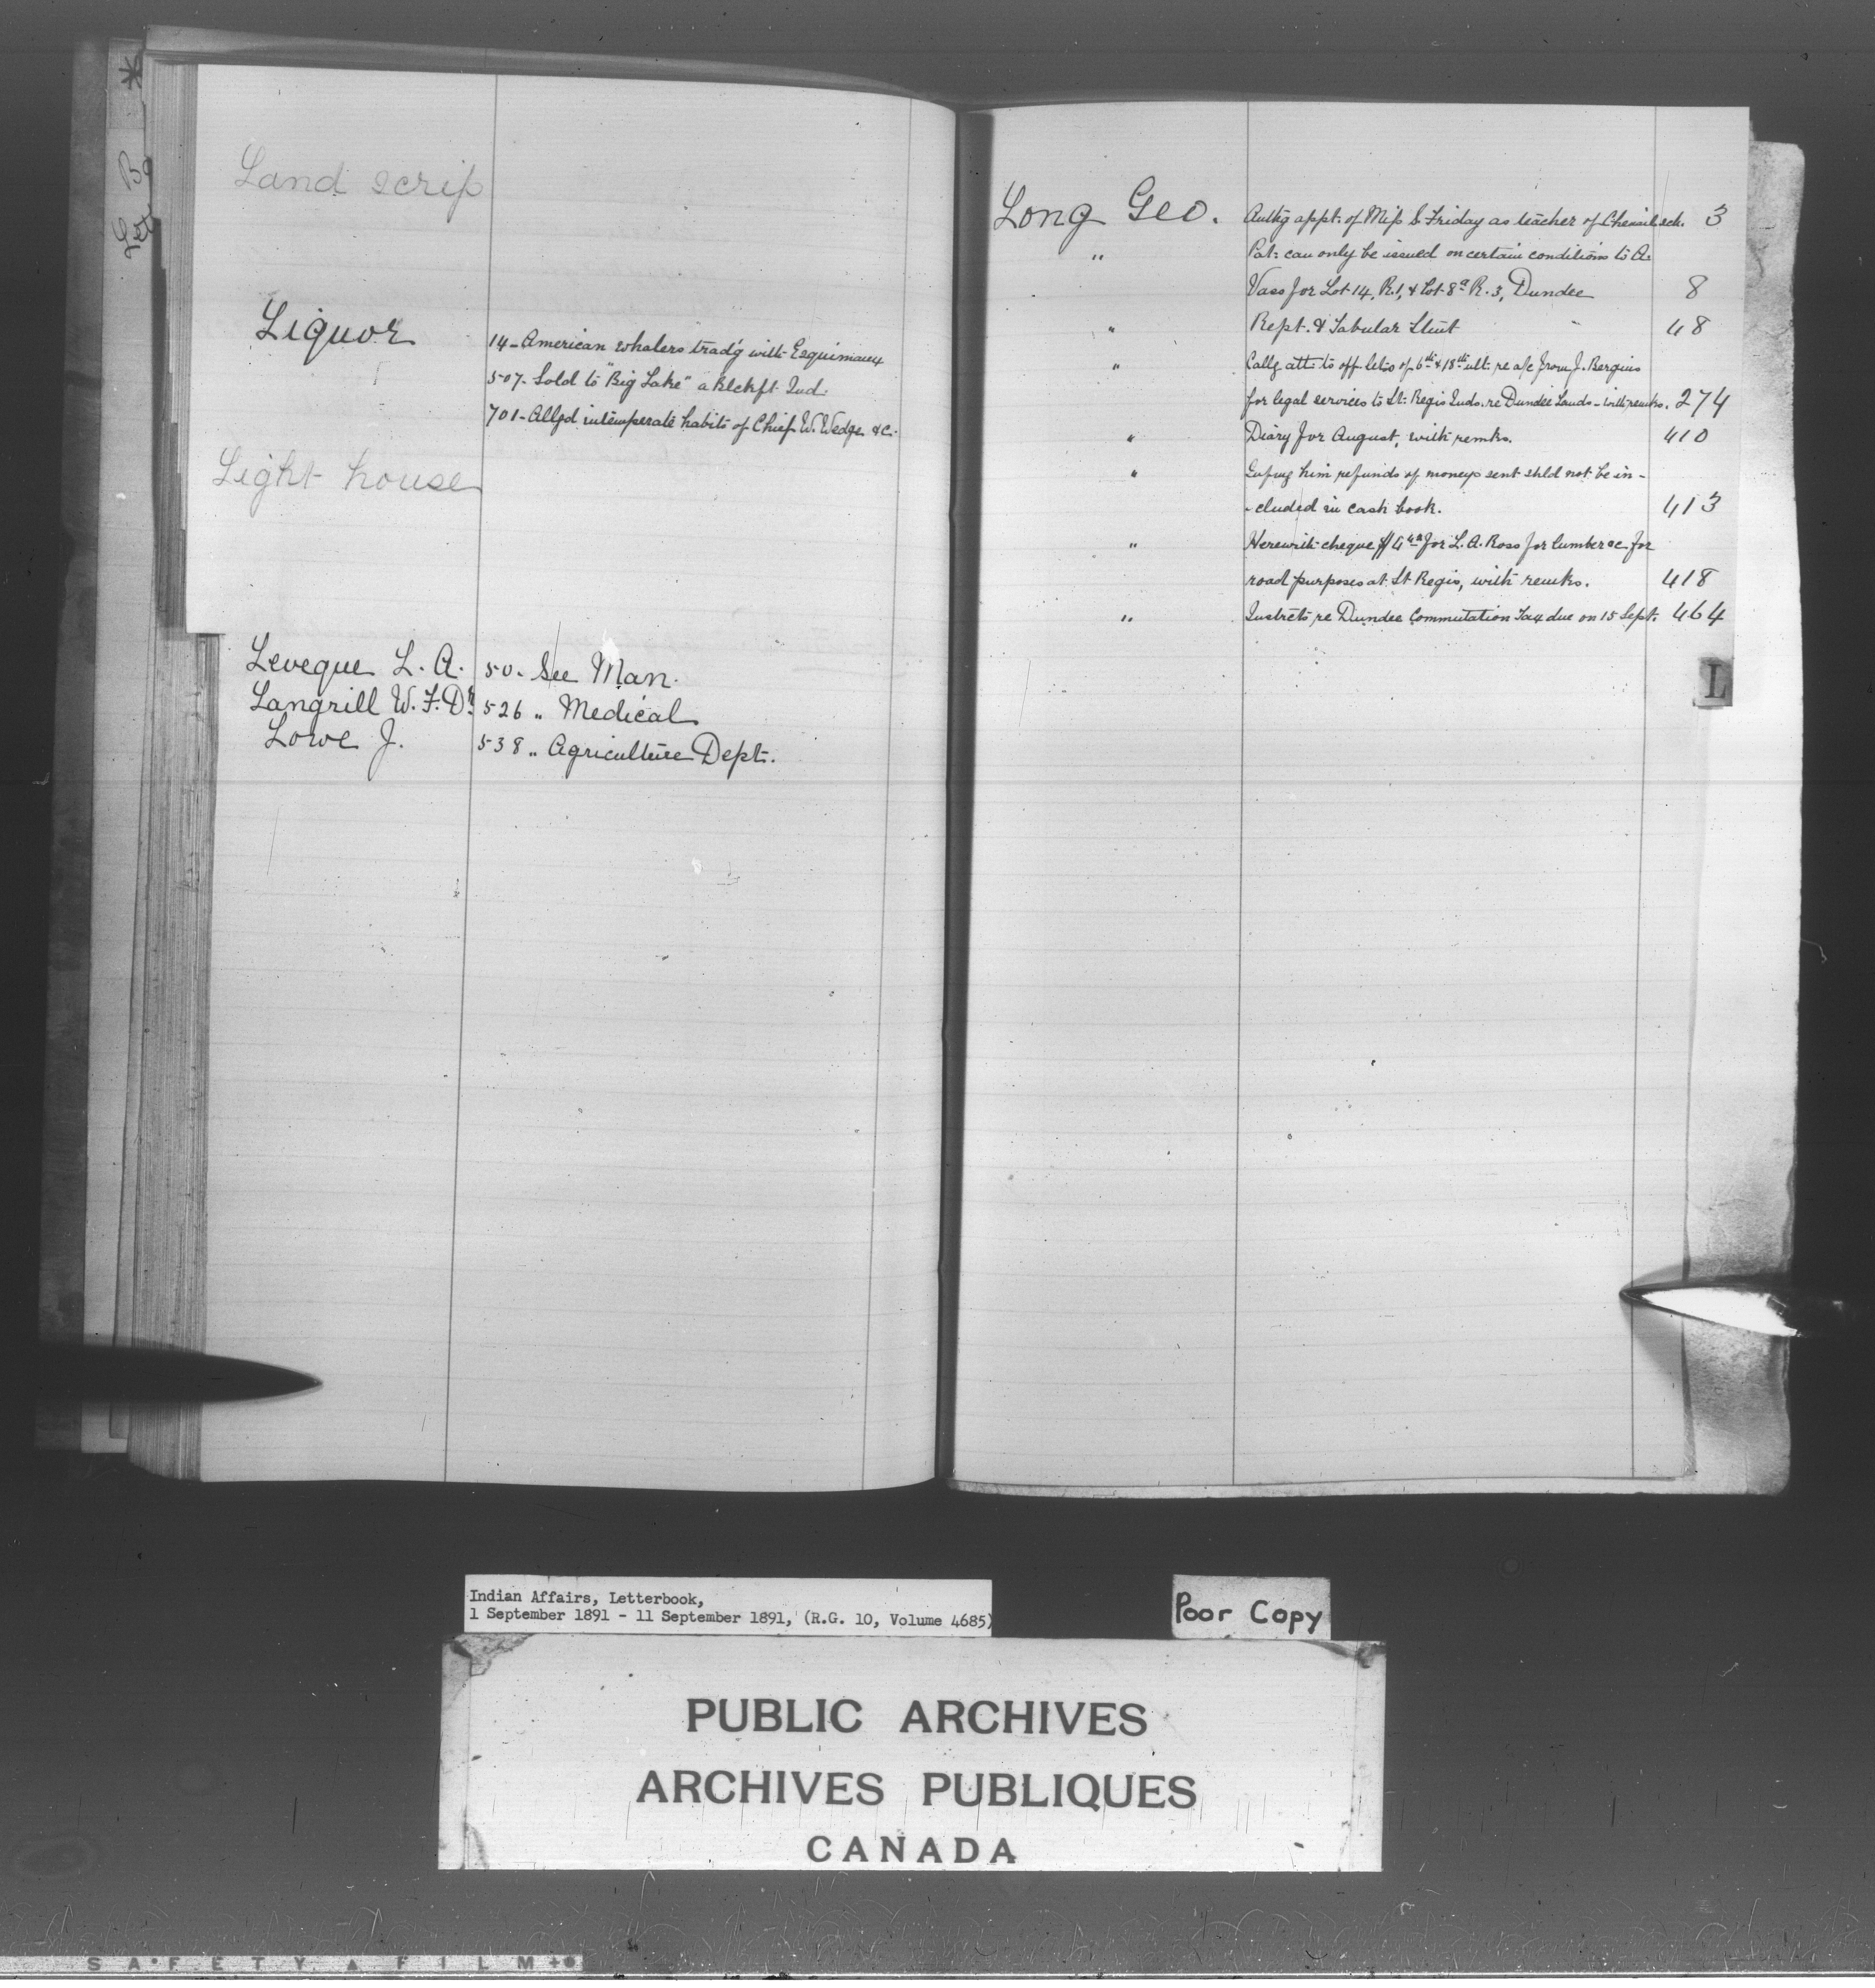 Land scrip
Liquor
14 - American whalers trad'g with Esquimaux
507 - Sold to "Big Lake" a Blckft Ind.
701 - Allgd intemperate habits of Chief W. Wedge &c.
Light house
Leveque L. A. 50. See Man.
Langrill W. F. Dr. 526 " Medical
Lowe J. 538 " Agriculture Dept.
Long Geo. Authg appt. of Miss S. Friday as teacher of sch. 3
" Pat: can only be issued on certain conditions to A.
Vass for Lot 14, R. 1, & Lot 8a R. 3, Dundee 8
" Rept. & Tabular Stmt 48
" Callg attn to off. letrs of 6th & 18th ult. re a/c from J. Bergin
for legal services to St. Regis Inds. re Dundee Lands - with remks. 274
" Diary for August, with remks. 410
" Infmg him refunds of moneys sent shld not be in-
-cluded in cash book. 413
" Herewith cheque for L. A. Ross for lumber &c for
road purposes at St Regis, with remks. 418
" Instrcts re Dundee Commutation Tax due on 15 Sept. 464
L
Indian Affairs, Letterbook,
1 September 1891 - 11 September 1891, (R.G. 10, Volume 4685)
Poor Copy
PUBLIC ARCHIVES
ARCHIVES PUBLIQUES
CANADA
SAFETY FILM